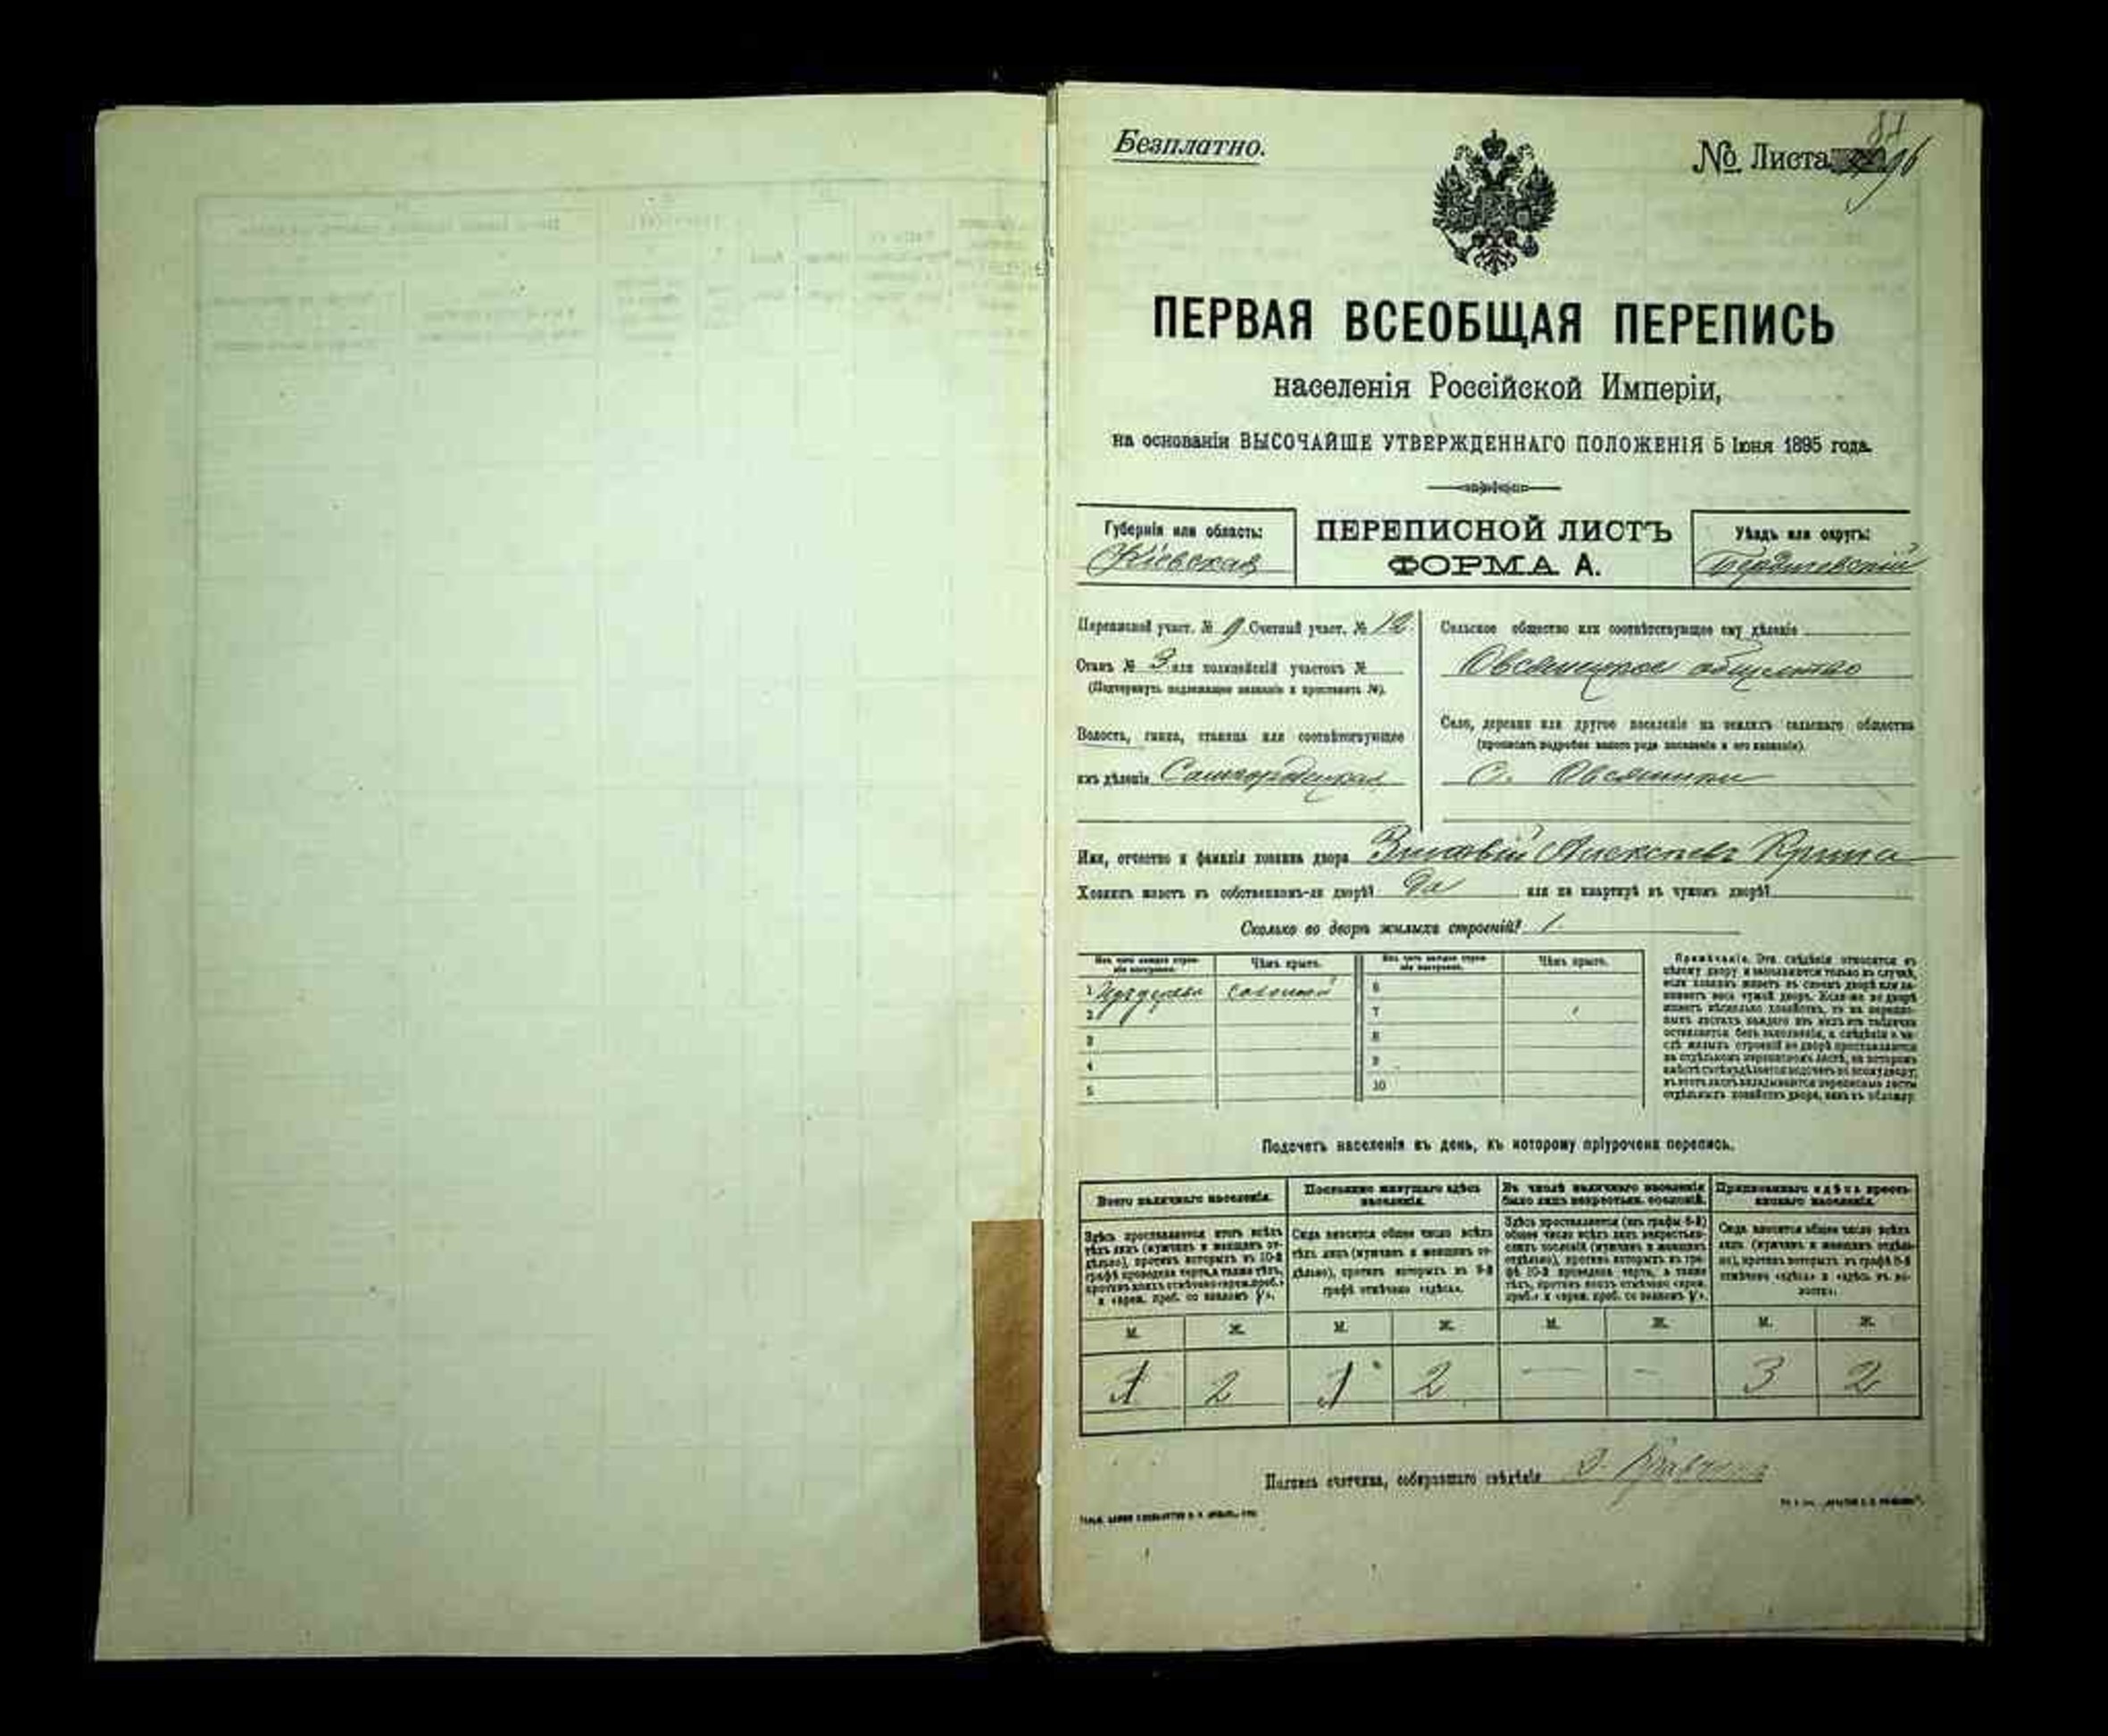 Безплатно.
№ Листа 96
ПЕРВАЯ ВСЕОБЩАЯ ПЕРЕПИСЬ
населенія Россійской Имперіи,
на основаніи ВЫСОЧАЙШЕ УТВЕРЖДЕННАГО ПОЛОЖЕНІЯ 5 Іюня 1895 года.
Губернія или область:
Кіевская
ПЕРЕПИСНОЙ ЛИСТЪ
ФОРМА А.
Уѣздъ или округъ:
Бердичевскій
Переписной участ. № 9 Счетный участ. № 12
Станъ № 3 или полицейскій участокъ №
(Подчеркнуть подлежащее названіе и проставить №).
Волость, гмина, станица или соотвѣтствующее
имъ дѣленіе Самгородецкая
Сельское общество или соотвѣтствующее ему дѣленіе
Овсяницкое общество
Село, деревня или другое поселеніе на земляхъ сельскаго общества
(прописать подробно какого рода поселеніе и его названіе).
С. Овсяники
Имя, отчество и фамилія хозяина двора Зиновій Алексѣевъ
Хозяинъ живетъ въ собственномъ-ли дворѣ? Да или на квартирѣ въ чужомъ дворѣ?
Сколько во дворѣ жилыхъ строеній? 1.
Изъ чего каждое строеніе построено.
Чѣмъ крыто.
Изъ чего каждое строеніе построено.
Чѣмъ крыто.
1 соломой
2
3
4
5
6
7
8
9
10
Примѣчаніе. Эти свѣдѣнія относятся къ
цѣлому двору и записываются только въ случаѣ,
если хозяинъ живетъ въ своемъ дворѣ или за-
нимаетъ весь чужой дворъ. Если-же во дворѣ
имѣетъ нѣсколько хозяйствъ, то на перепис-
ныхъ листахъ каждаго изъ нихъ эта табличка
оставляется безъ заполненія, а свѣдѣнія о чи-
слѣ жилыхъ строеній во дворѣ проставляются
на отдѣльномъ переписномъ листѣ, на которомъ
въ этотъ листъ вкладываются переписные листы
отдѣльныхъ хозяйствъ двора, какъ въ обложку.
Подсчетъ населенія въ день, къ которому пріурочена перепись.
Всего наличнаго населенія.
Постоянно живущаго здѣсь
населенія.
Въ числѣ наличнаго населенія
было лицъ некрестьян. сословій.
Приписаннаго здѣсь кресть-
янскаго населенія.
Здѣсь проставляется итогъ всѣхъ
тѣхъ лицъ (мужчинъ и женщинъ от-
дѣльно), противъ которыхъ въ 10-й
графѣ проведена черта, а также тѣхъ,
противъ коихъ отмѣчено «врем. преб.»
и «врем. преб. со знакомъ V».
Сюда вносится общее число всѣхъ
тѣхъ лицъ (мужчинъ и женщинъ от-
дѣльно), противъ которыхъ въ 9-й
графѣ отмѣчено «здѣсь».
Здѣсь проставляется (изъ графы 6-й)
общее число всѣхъ лицъ некрестьян-
скихъ сословій (мужчинъ и женщинъ
отдѣльно), противъ которыхъ въ гра-
фѣ 10-й проведена черта, а также
тѣхъ, противъ коихъ отмѣчено «врем.
преб.» и «врем. преб. со знакомъ V».
Сюда вносится общее число всѣхъ
лицъ (мужчинъ и женщинъ отдѣль-
но), противъ которыхъ въ графѣ 8-й
отмѣчено «здѣсь» и «здѣсь въ во-
лости».
М. Ж. М. Ж. М. Ж. М. Ж.
1 2 1 2 — — 3 2
Подпись счетчика, собиравшаго свѣдѣнія